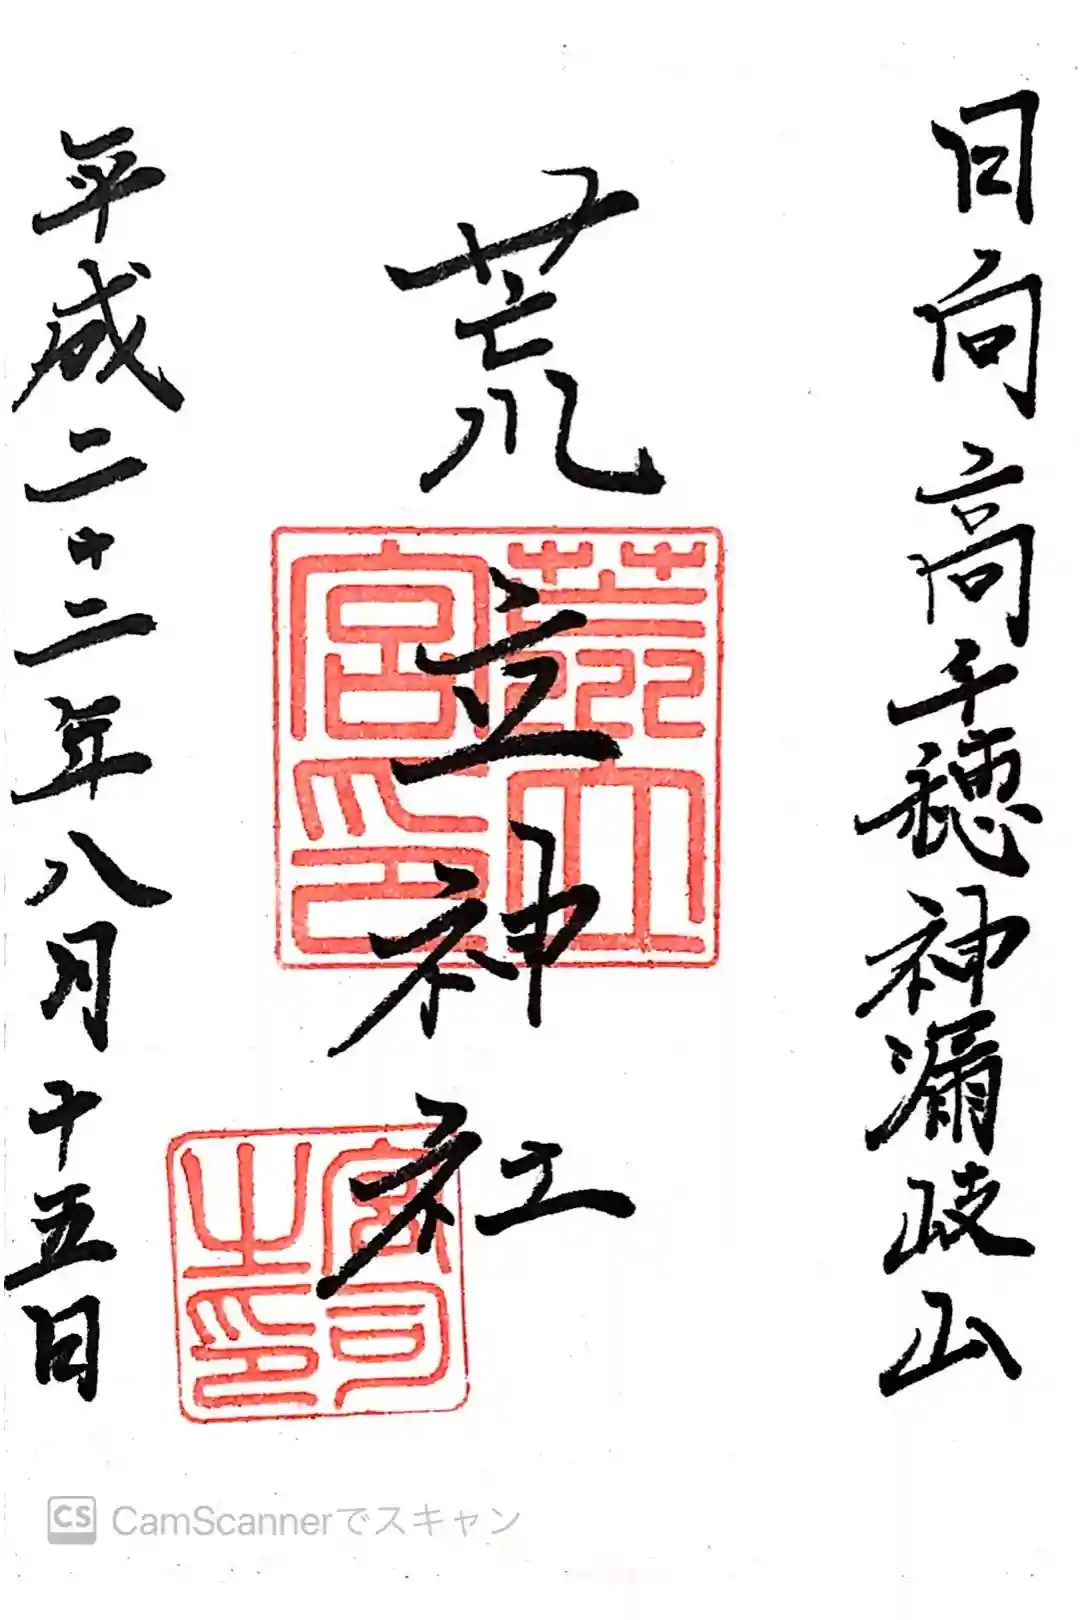 日向高千穂神漏岐山
荒立神社
荒立宮印
宮司之印
平成二十二年八月十五日
CS CamScannerでスキャン